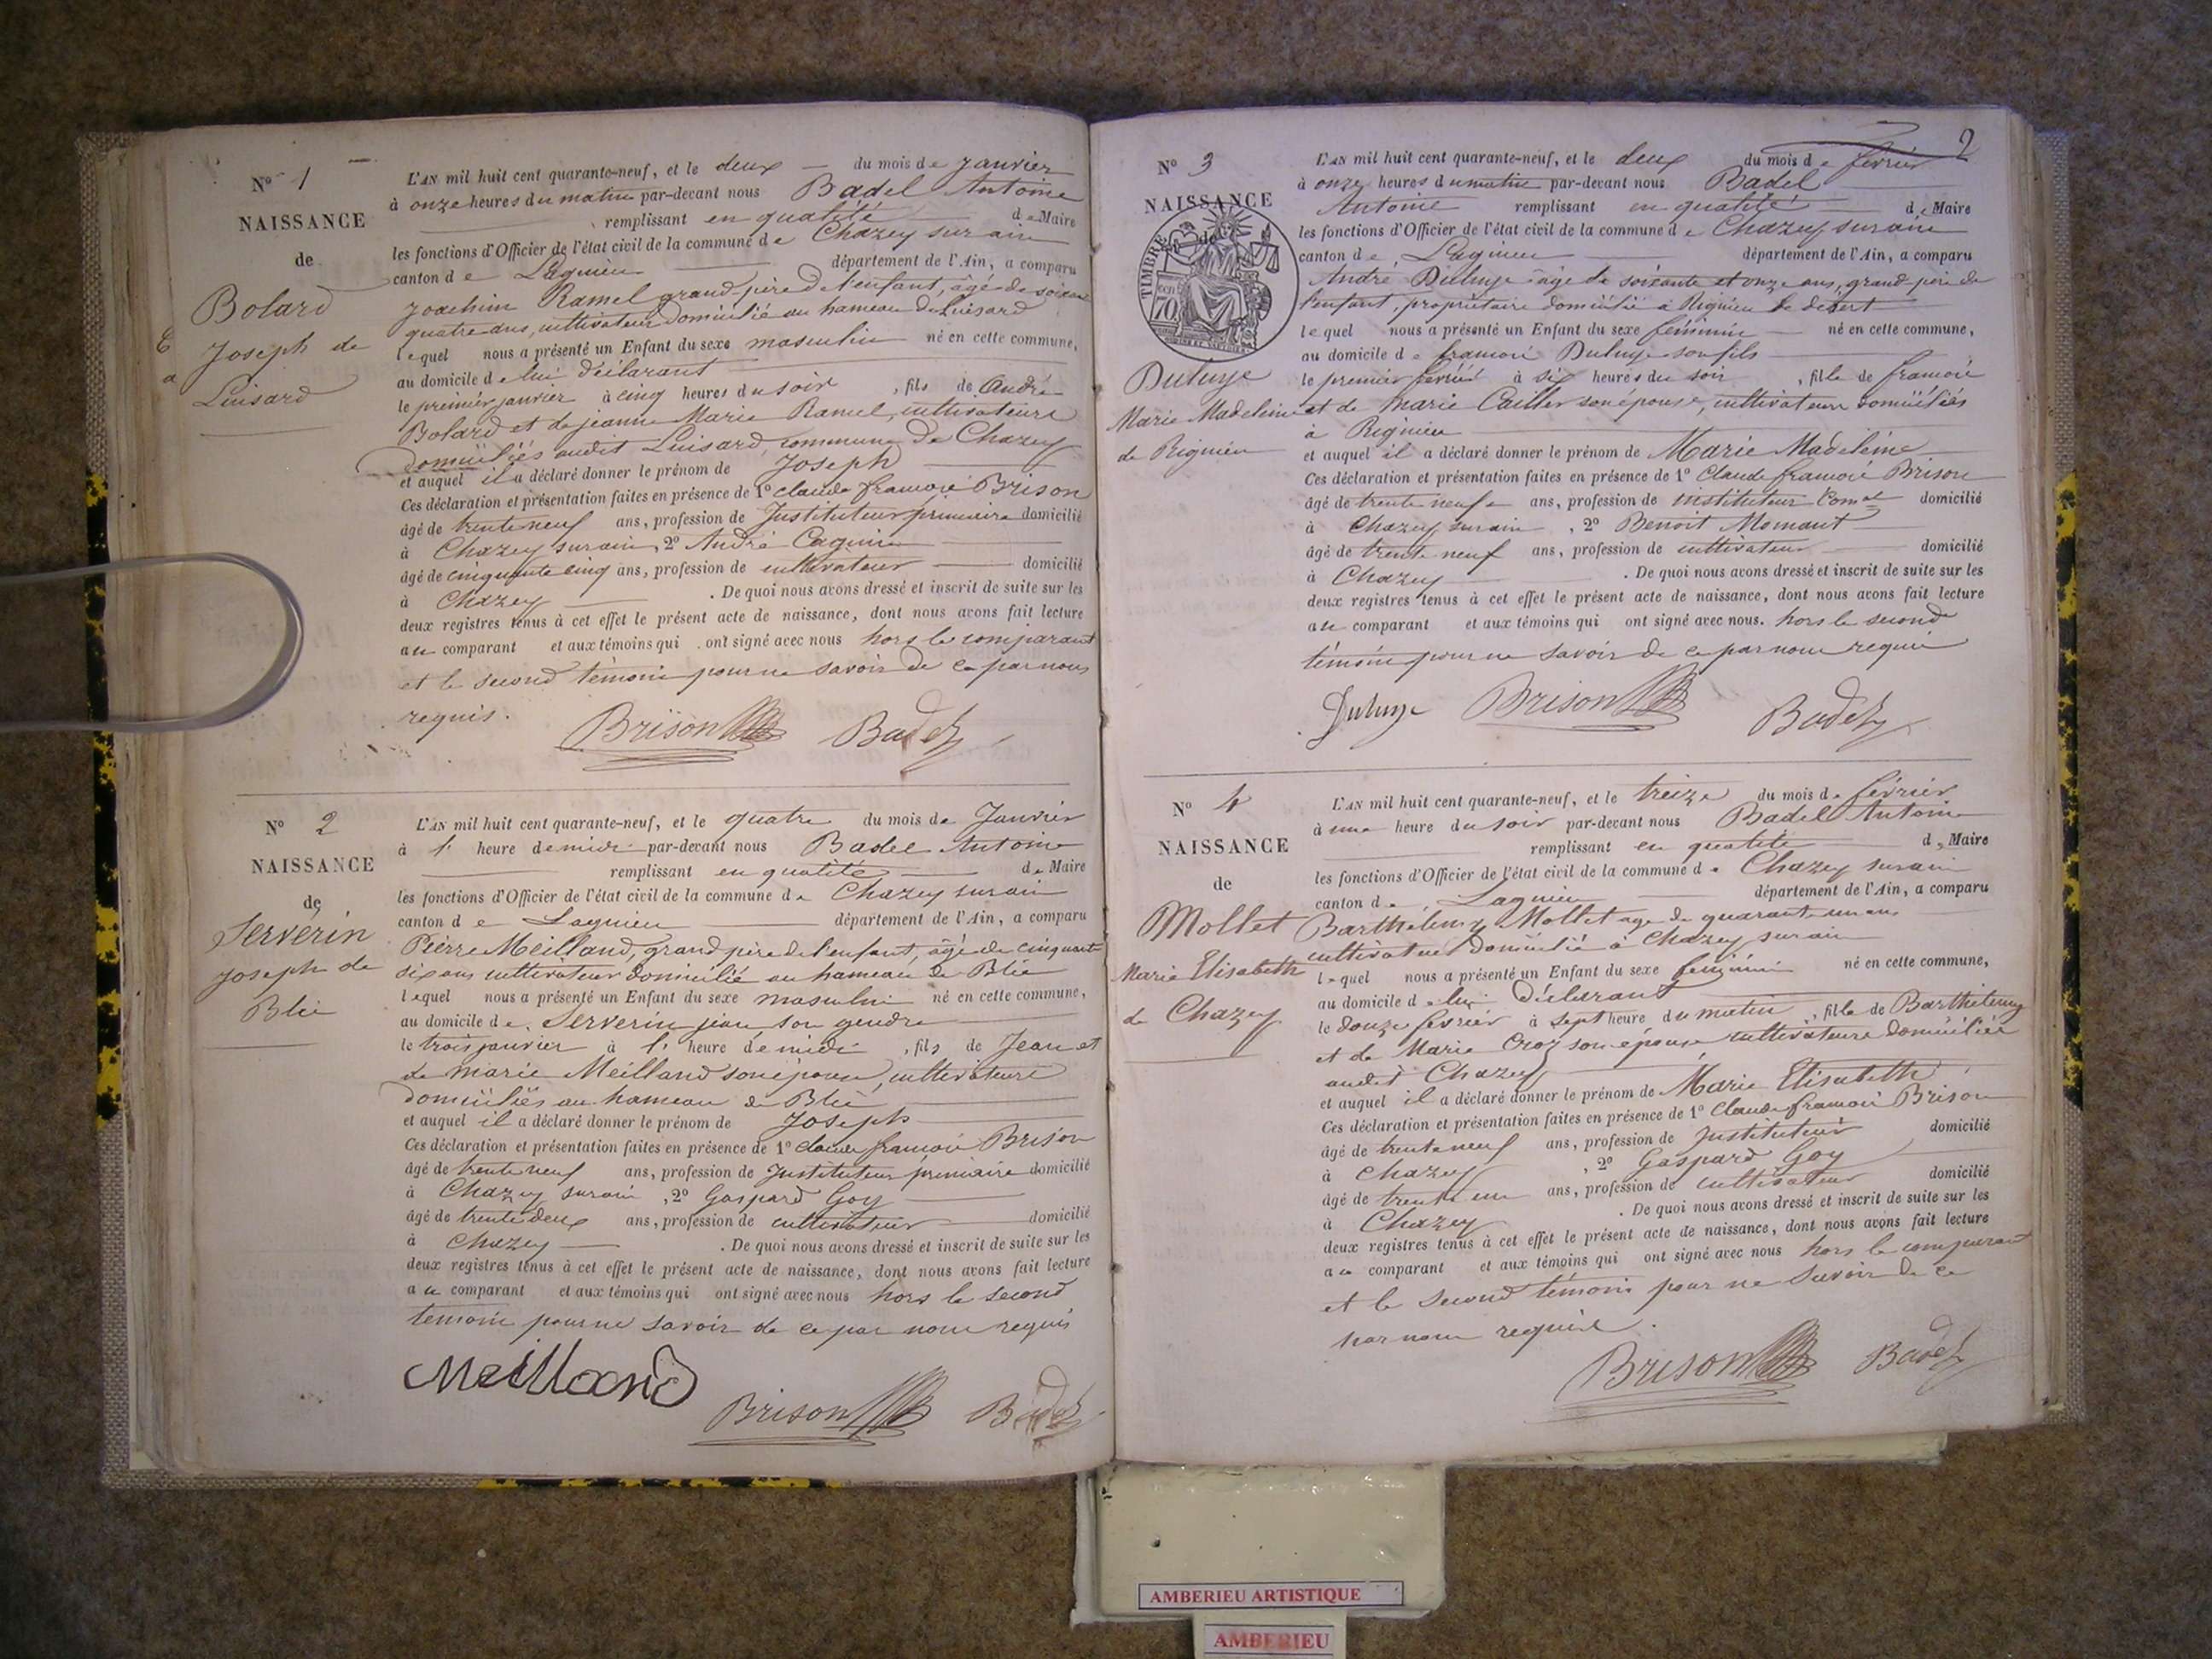 N° 1
NAISSANCE
de
Bolard
Joseph de
Luisard
L'AN mil huit cent quarante-neuf, et le deux du mois de Janvier
à onze heures du matin par-devant nous Badel Antoine
remplissant en qualité de Maire
les fonctions d'Officier de l'état civil de la commune de Chazey sur ain
canton de Lagnieu département de l'Ain, a comparu
Joachim Ramel grand-père de l'enfant, âgé de soixante
quatre ans, cultivateur domicilié au hameau de Luisard
lequel nous a présenté un Enfant du sexe masculin né en cette commune,
au domicile de lui déclarant
le premier janvier à cinq heures du soir, fils de André
Bolard et de jeanne Marie Ramel, cultivateurs
domiciliés audit Luisard, commune de Chazey
et auquel il a déclaré donner le prénom de Joseph
Ces déclaration et présentation faites en présence de 1° Claude françois Brison
âgé de trente neuf ans, profession de Instituteur primaire domicilié
à Chazey sur ain, 2° André
âgé de cinquante cinq ans, profession de cultivateur domicilié
à Chazey. De quoi nous avons dressé et inscrit de suite sur les
deux registres tenus à cet effet le présent acte de naissance, dont nous avons fait lecture
au comparant et aux témoins qui ont signé avec nous hors le comparant
et le second témoin pour ne savoir de ce par nous
requis.
Brison Badel
N° 2
NAISSANCE
de
Serverin
Joseph de
Blie
L'AN mil huit cent quarante-neuf, et le quatre du mois de Janvier
à 1 heure de midi par-devant nous Badel Antoine
remplissant en qualité de Maire
les fonctions d'Officier de l'état civil de la commune de Chazey sur ain
canton de Lagnieu département de l'Ain, a comparu
Pierre Meilland, grand père de l'enfant, âgé de cinquante
six ans cultivateur domicilié au hameau de Blie
lequel nous a présenté un Enfant du sexe masculin né en cette commune,
au domicile de Serverin jean son gendre
le trois janvier à 1 heure de midi, fils de Jean et
de marie Meilland son épouse, cultivateurs
domiciliés au hameau de Blie
et auquel il a déclaré donner le prénom de Joseph
Ces déclaration et présentation faites en présence de 1° Claude françois Brison
âgé de trente neuf ans, profession de Instituteur primaire domicilié
à Chazey sur ain, 2° Gaspard Goy
âgé de trente deux ans, profession de cultivateur domicilié
à Chazey. De quoi nous avons dressé et inscrit de suite sur les
deux registres tenus à cet effet le présent acte de naissance, dont nous avons fait lecture
au comparant et aux témoins qui ont signé avec nous hors le second
témoin pour ne savoir de ce par nous requis
Meilland
Brison Badel
2
N° 3
NAISSANCE
de
TIMBRE
70
Duluye
Marie Madeleine
de Rignieu
L'AN mil huit cent quarante-neuf, et le deux du mois de février
à onze heures du matin par-devant nous Badel
Antoine remplissant en qualité de Maire
les fonctions d'Officier de l'état civil de la commune de Chazey sur ain
canton de Lagnieu département de l'Ain, a comparu
André Duluye âgé de soixante et onze ans, grand père de
l'enfant, propriétaire domicilié à Rignieu le désert
lequel nous a présenté un Enfant du sexe féminin né en cette commune,
au domicile de françois Duluye son fils
le premier février à six heures du soir, fille de françois
et de marie Cailler son épouse, cultivateurs domiciliés
à Rignieu
et auquel il a déclaré donner le prénom de Marie Madeleine
Ces déclaration et présentation faites en présence de 1° Claude françois Brison
âgé de trente neuf ans, profession de instituteur Comal domicilié
à Chazey sur ain, 2° Benoit Momant
âgé de trente neuf ans, profession de cultivateur domicilié
à Chazey. De quoi nous avons dressé et inscrit de suite sur les
deux registres tenus à cet effet le présent acte de naissance, dont nous avons fait lecture
au comparant et aux témoins qui ont signé avec nous. hors le second
témoin pour ne savoir de ce par nous requis
Duluye Brison Badel
N° 4
NAISSANCE
de
Mollet
Marie Elisabeth
de Chazey
L'AN mil huit cent quarante-neuf, et le treize du mois de février
à une heure du soir par-devant nous Badel Antoine
remplissant en qualité de Maire
les fonctions d'Officier de l'état civil de la commune de Chazey sur ain
canton de Lagnieu département de l'Ain, a comparu
Barthélemy Mollet âgé de quarante un ans
cultivateur domicilié à Chazey sur ain
lequel nous a présenté un Enfant du sexe féminin né en cette commune,
au domicile de lui déclarant
le douze février à sept heure du matin, fille de Barthélemy
et de Marie Croz son épouse cultivateurs domiciliés
audit Chazey
et auquel il a déclaré donner le prénom de Marie Elisabeth
Ces déclaration et présentation faites en présence de 1° Claude françois Brison
âgé de trente neuf ans, profession de Instituteur domicilié
à Chazey, 2° Gaspard Goy
âgé de trente un ans, profession de cultivateur domicilié
à Chazey. De quoi nous avons dressé et inscrit de suite sur les
deux registres tenus à cet effet le présent acte de naissance, dont nous avons fait lecture
au comparant et aux témoins qui ont signé avec nous hors le comparant
et le second témoin pour ne savoir de ce
par nous requis.
Brison Badel
AMBERIEU ARTISTIQUE
AMBERIEU